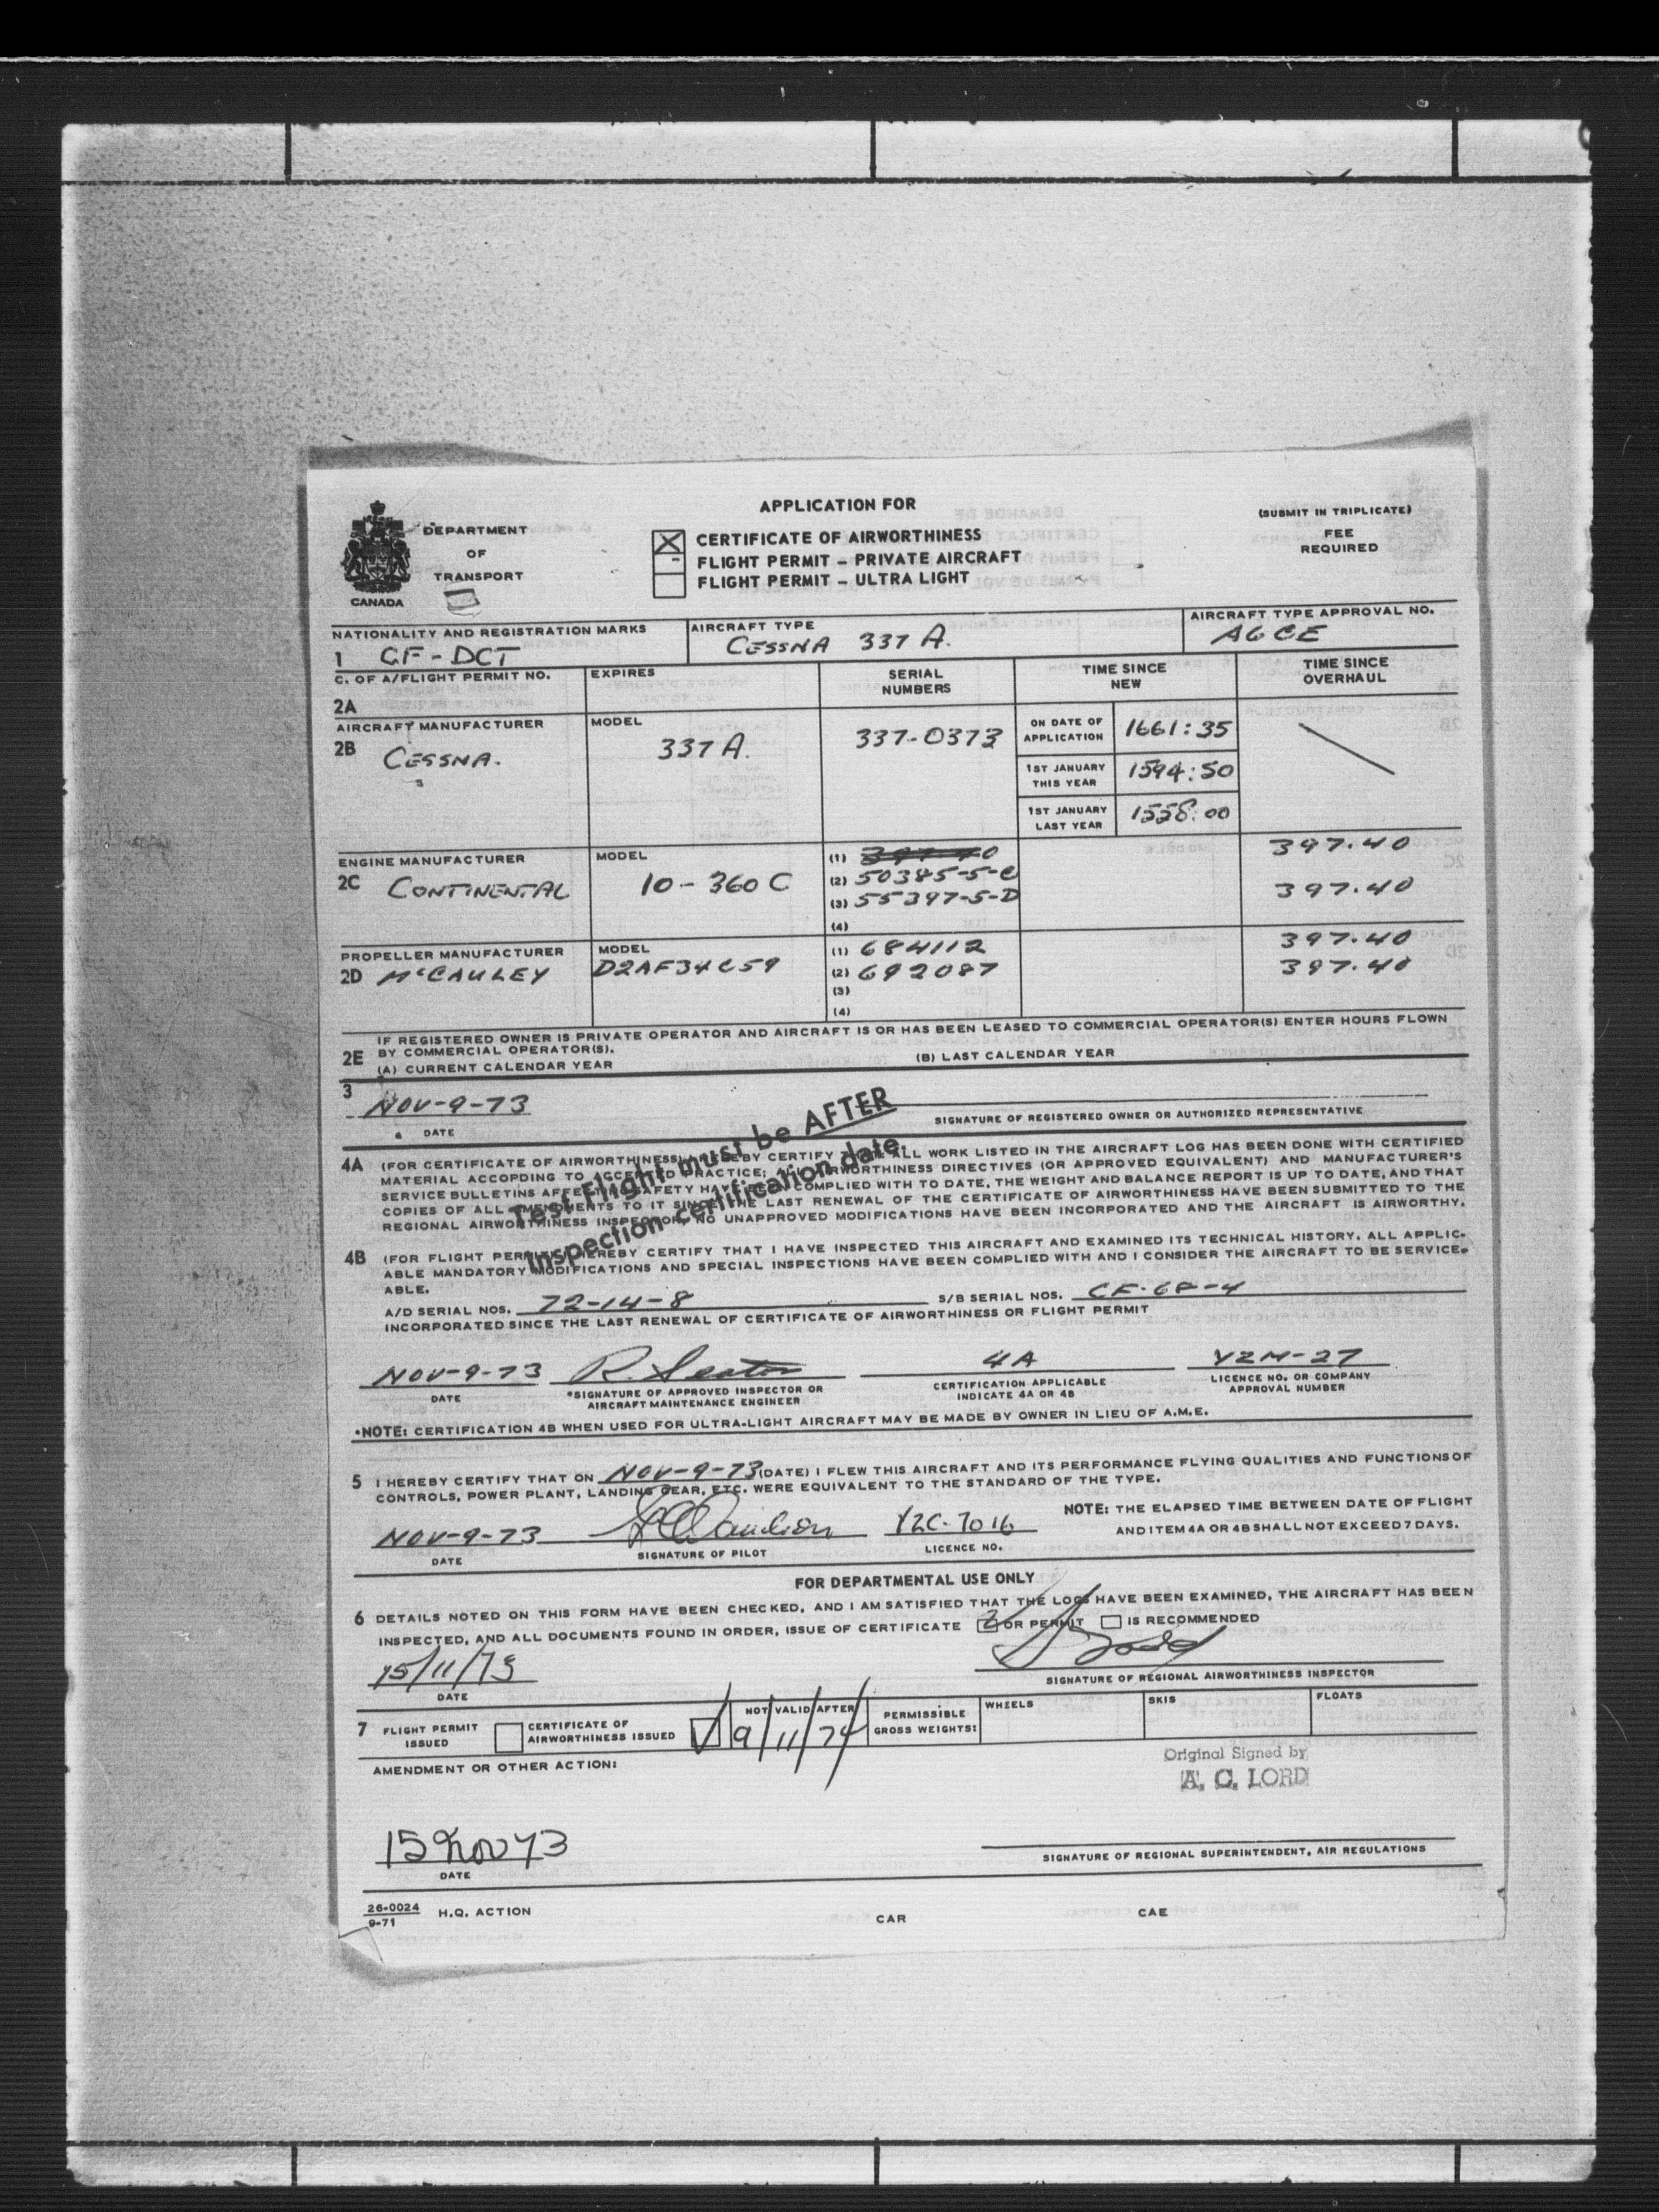 APPLICATION FOR
DEPARTMENT
OF
TRANSPORT
CANADA
CERTIFICATE OF AIRWORTHINESS
FLIGHT PERMIT – PRIVATE AIRCRAFT
FLIGHT PERMIT – ULTRA LIGHT
(SUBMIT IN TRIPLICATE)
FEE
REQUIRED
NATIONALITY AND REGISTRATION MARKS
1 CF-DCT
AIRCRAFT TYPE
CESSNA 337 A.
AIRCRAFT TYPE APPROVAL NO.
A6CE
C. OF A/FLIGHT PERMIT NO.
2A
EXPIRES
SERIAL
NUMBERS
TIME SINCE
NEW
TIME SINCE
OVERHAUL
AIRCRAFT MANUFACTURER
2B CESSNA.
MODEL
337 A.
337-0373
ON DATE OF
APPLICATION 1661:35
1ST JANUARY
THIS YEAR 1594:50
1ST JANUARY
LAST YEAR 1558:00
ENGINE MANUFACTURER
2C CONTINENTAL
MODEL
10-360 C
(1)
(2) 50385-5-C
(3) 55397-5-D
(4)
397.40
397.40
PROPELLER MANUFACTURER
2D McCAULEY
MODEL
D2AF34C59
(1) 684112
(2) 692087
(3)
(4)
397.40
397.40
2E IF REGISTERED OWNER IS PRIVATE OPERATOR AND AIRCRAFT IS OR HAS BEEN LEASED TO COMMERCIAL OPERATOR(S) ENTER HOURS FLOWN
BY COMMERCIAL OPERATOR(S).
(A) CURRENT CALENDAR YEAR
(B) LAST CALENDAR YEAR
3
NOV-9-73
DATE
SIGNATURE OF REGISTERED OWNER OR AUTHORIZED REPRESENTATIVE
Test Flight must be AFTER
Inspection certification date.
4A (FOR CERTIFICATE OF AIRWORTHINESS) I HEREBY CERTIFY THAT ALL WORK LISTED IN THE AIRCRAFT LOG HAS BEEN DONE WITH CERTIFIED
MATERIAL ACCORDING TO ACCEPTED PRACTICE; ALL AIRWORTHINESS DIRECTIVES (OR APPROVED EQUIVALENT) AND MANUFACTURER'S
SERVICE BULLETINS AFFECTING SAFETY HAVE BEEN COMPLIED WITH TO DATE, THE WEIGHT AND BALANCE REPORT IS UP TO DATE, AND THAT
COPIES OF ALL AMENDMENTS TO IT SINCE THE LAST RENEWAL OF THE CERTIFICATE OF AIRWORTHINESS HAVE BEEN SUBMITTED TO THE
REGIONAL AIRWORTHINESS INSPECTOR, NO UNAPPROVED MODIFICATIONS HAVE BEEN INCORPORATED AND THE AIRCRAFT IS AIRWORTHY.
4B (FOR FLIGHT PERMIT) I HEREBY CERTIFY THAT I HAVE INSPECTED THIS AIRCRAFT AND EXAMINED ITS TECHNICAL HISTORY. ALL APPLIC-
ABLE MANDATORY MODIFICATIONS AND SPECIAL INSPECTIONS HAVE BEEN COMPLIED WITH AND I CONSIDER THE AIRCRAFT TO BE SERVICE-
ABLE.
A/D SERIAL NOS. 72-14-8 S/B SERIAL NOS. CF-68-4
INCORPORATED SINCE THE LAST RENEWAL OF CERTIFICATE OF AIRWORTHINESS OR FLIGHT PERMIT
NOV-9-73 4A YZM-27
DATE
*SIGNATURE OF APPROVED INSPECTOR OR
AIRCRAFT MAINTENANCE ENGINEER
CERTIFICATION APPLICABLE
INDICATE 4A OR 4B
LICENCE NO. OR COMPANY
APPROVAL NUMBER
*NOTE: CERTIFICATION 4B WHEN USED FOR ULTRA-LIGHT AIRCRAFT MAY BE MADE BY OWNER IN LIEU OF A.M.E.
5 I HEREBY CERTIFY THAT ON NOV-9-73 (DATE) I FLEW THIS AIRCRAFT AND ITS PERFORMANCE FLYING QUALITIES AND FUNCTIONS OF
CONTROLS, POWER PLANT, LANDING GEAR, ETC. WERE EQUIVALENT TO THE STANDARD OF THE TYPE.
NOV-9-73 YZC-7016
DATE
SIGNATURE OF PILOT
LICENCE NO.
NOTE: THE ELAPSED TIME BETWEEN DATE OF FLIGHT
AND ITEM 4A OR 4B SHALL NOT EXCEED 7 DAYS.
FOR DEPARTMENTAL USE ONLY
6 DETAILS NOTED ON THIS FORM HAVE BEEN CHECKED, AND I AM SATISFIED THAT THE LOGS HAVE BEEN EXAMINED, THE AIRCRAFT HAS BEEN
INSPECTED, AND ALL DOCUMENTS FOUND IN ORDER, ISSUE OF CERTIFICATE OR PERMIT IS RECOMMENDED
15/11/73
DATE
SIGNATURE OF REGIONAL AIRWORTHINESS INSPECTOR
7 FLIGHT PERMIT
ISSUED
CERTIFICATE OF
AIRWORTHINESS ISSUED
NOT VALID AFTER
9/11/74
PERMISSIBLE
GROSS WEIGHTS:
WHEELS
SKIS
FLOATS
AMENDMENT OR OTHER ACTION:
Original Signed by
A. C. LORD
15 Nov 73
DATE
SIGNATURE OF REGIONAL SUPERINTENDENT, AIR REGULATIONS
26-0024
9-71
H.Q. ACTION
CAR
CAE